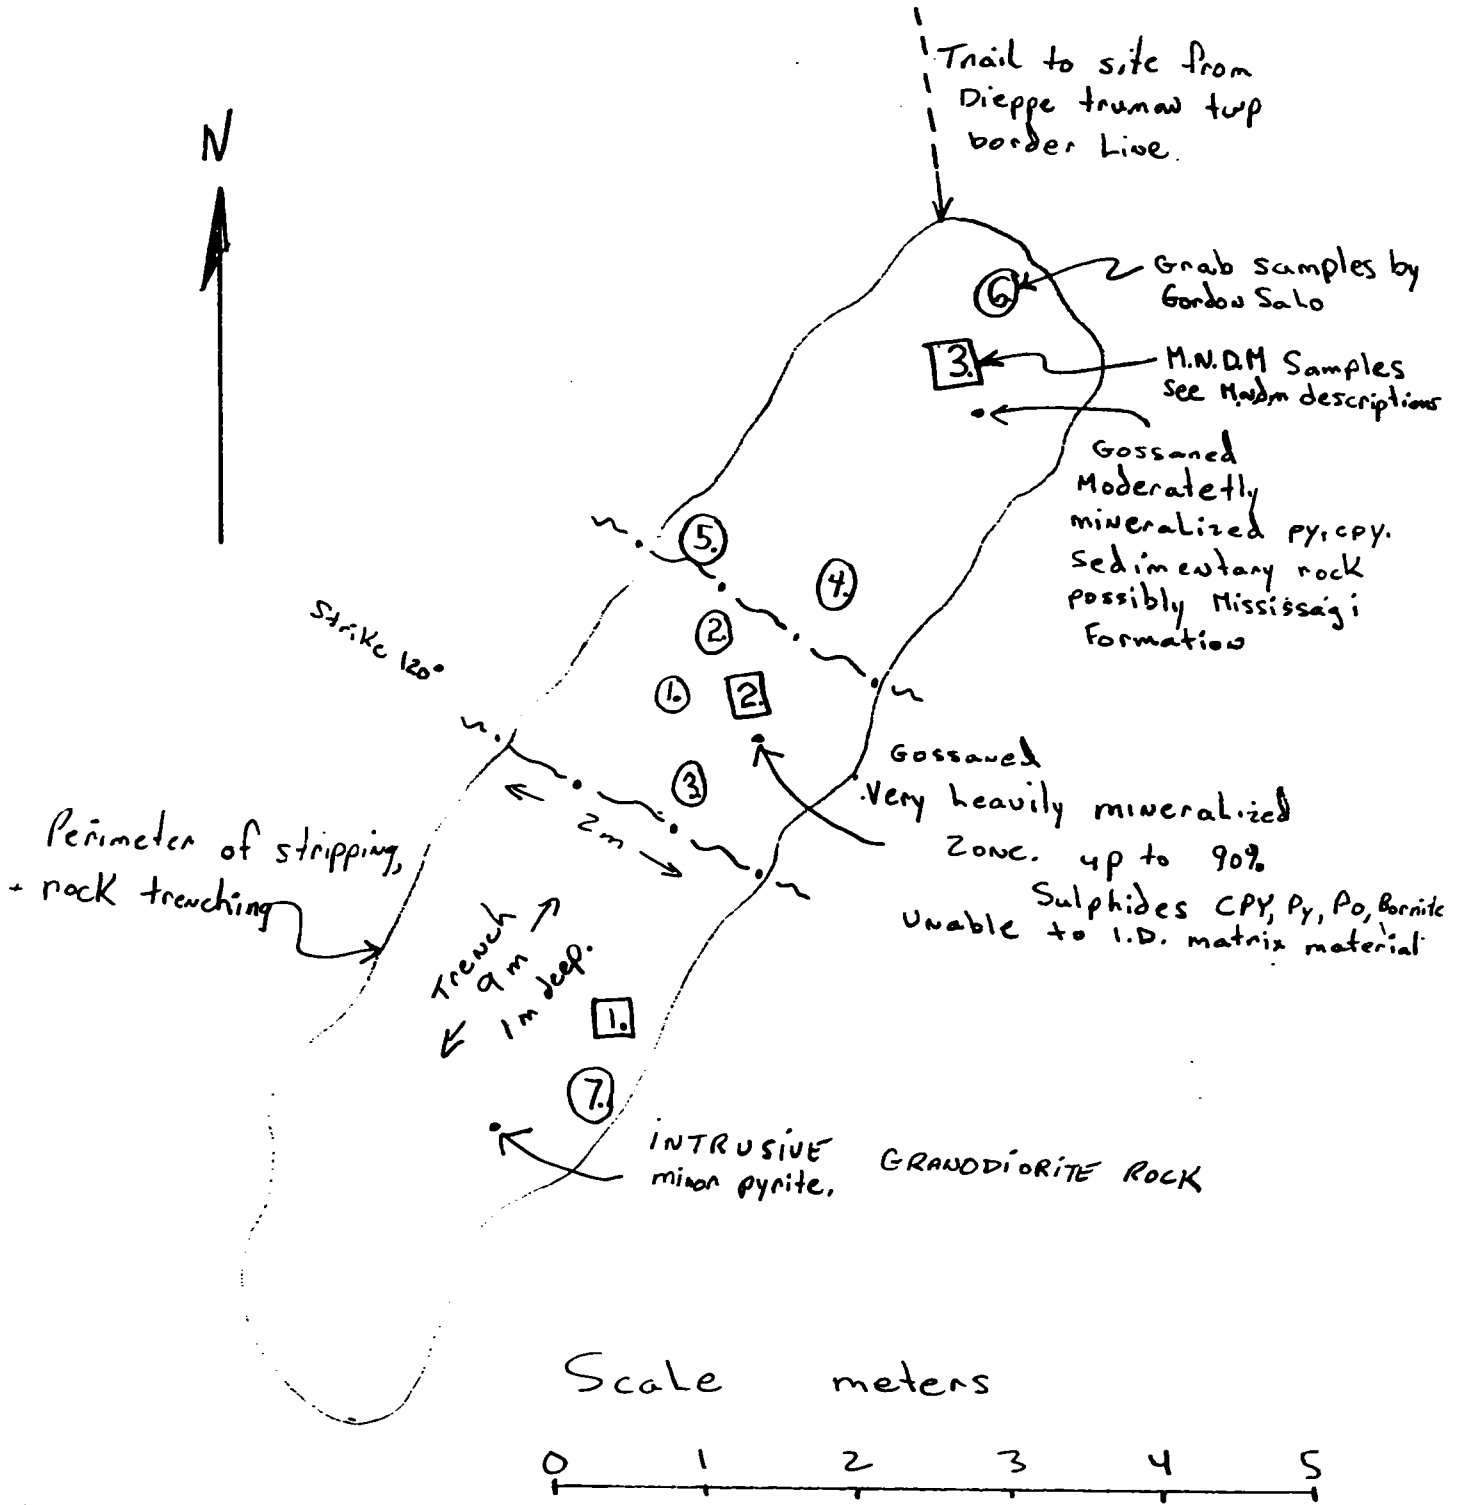 Trail to site from
Dieppe truman twp
border Line.
N
6
Grab samples by
Gordon Salo
3.
M.N.D.M Samples
see M.N.D.M descriptions
Gossaned
Moderatetly
mineralized py, cpy.
Sedimentary rock
possibly Mississagi
Formation
5.
4.
2
Strike 120°
1.
2.
3
2m
Gossaned
Very heavily mineralized
Zone. up to 90%
Sulphides CPY, Py, Po, Bornite
Unable to I.D. matrix material
Perimeter of stripping,
+ rock trenching
Trench
9 m
1 m deep.
1.
7.
INTRUSIVE GRANODIORITE ROCK
minor pyrite.
Scale meters
0 1 2 3 4 5